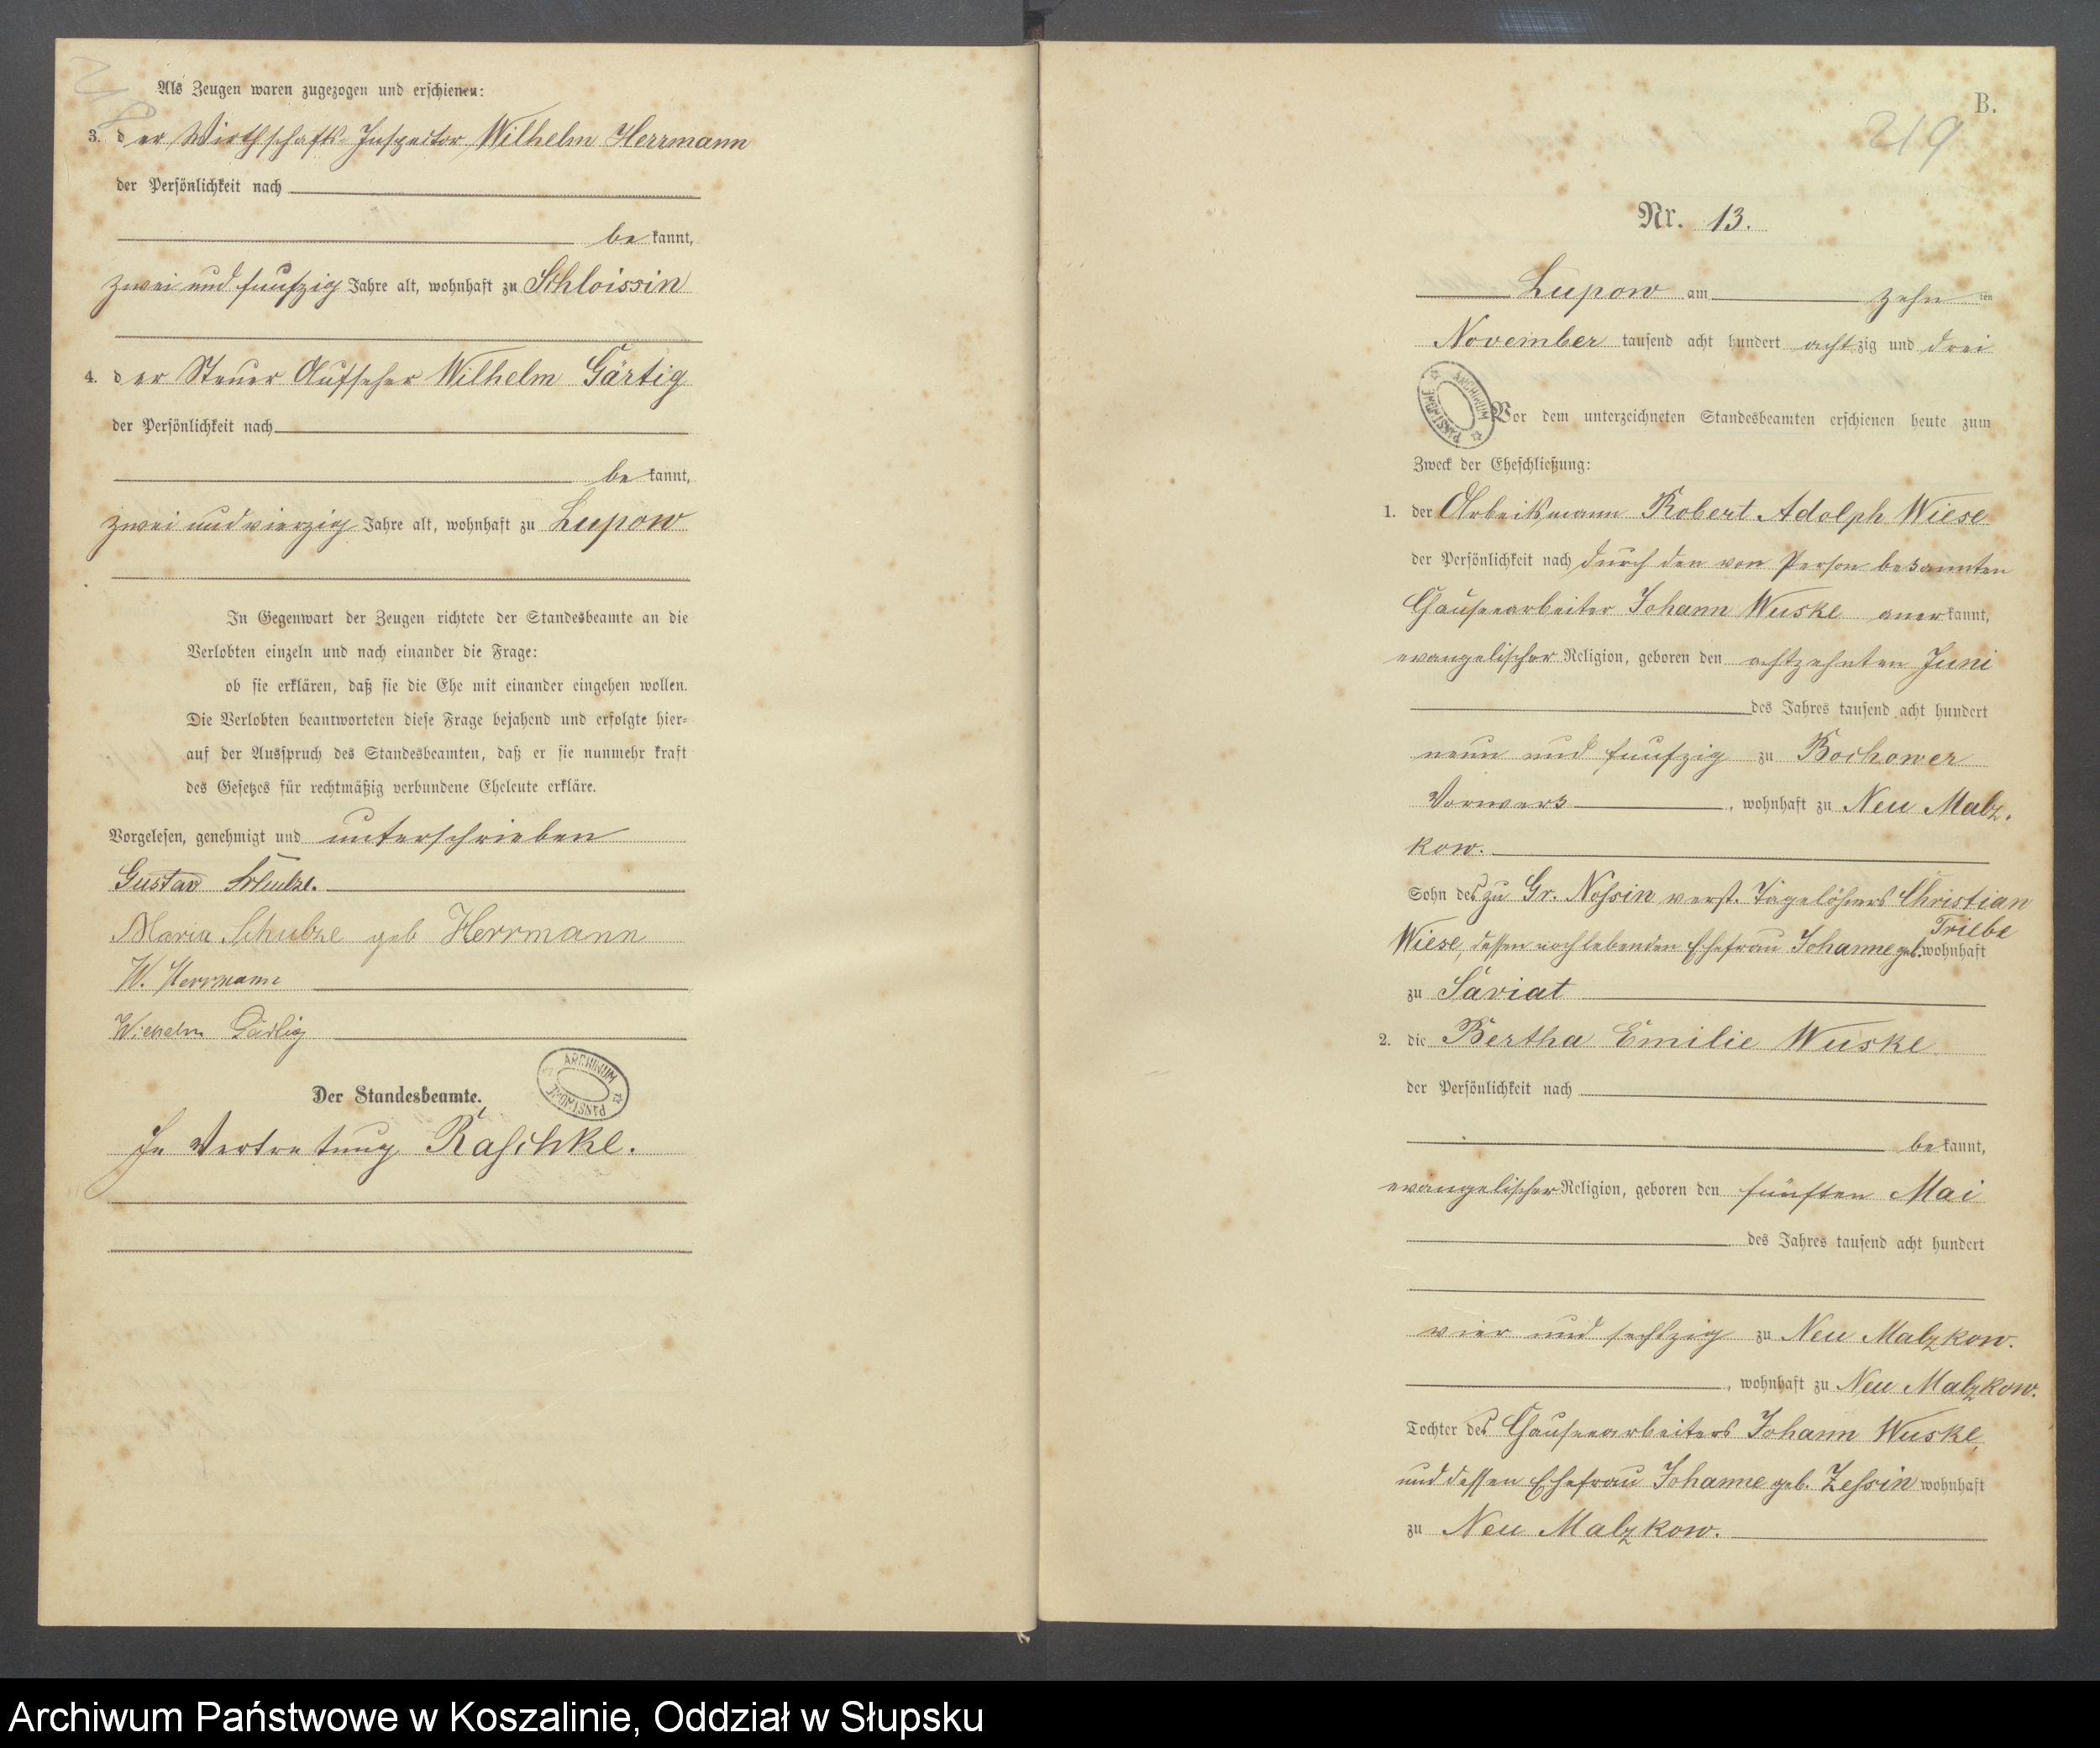 Als Zeugen waren zugezogen und erschienen:
3. der Wirthschafts-Inspector Wilhelm Herrmann
der Persönlichkeit nach
bekannt,
zwei und funfzig Jahre alt, wohnhaft zu Schloissin
4. der Steuer Aufseher Wilhelm Gärtig
der Persönlichkeit nach
bekannt,
zwei und vierzig Jahre alt, wohnhaft zu Lupow
In Gegenwart der Zeugen richtete der Standesbeamte an die
Verlobten einzeln und nach einander die Frage:
ob sie erklären, daß sie die Ehe mit einander eingehen wollen.
Die Verlobten beantworteten diese Frage bejahend und erfolgte hier-
auf der Ausspruch des Standesbeamten, daß er sie nunmehr kraft
des Gesetzes für rechtmäßig verbundene Eheleute erkläre.
Vorgelesen, genehmigt und unterschrieben
Gustav Schulze.
Maria Schulze geb Herrmann
W. Herrmann
Wilhelm Gärtig
Der Standesbeamte.
In Vertretung Raschke.
ARCHIWUM PAŃSTWOWE
B.
219
Nr. 13.
Lupow am zehnten
November tausend acht hundert achtzig und drei
ARCHIWUM PAŃSTWOWE
Vor dem unterzeichneten Standesbeamten erschienen heute zum
Zweck der Eheschließung:
1. der Arbeitsmann Robert Adolph Wiese
der Persönlichkeit nach durch den von Person bekannten
Chauseearbeiter Johann Wuske anerkannt,
evangelischer Religion, geboren den achtzehnten Juni
des Jahres tausend acht hundert
neun und funfzig zu Bochower
Vorwerk, wohnhaft zu Neu Malz-
kow.
Sohn des zu Gr. Nossin verst. Tagelöhners Christian
Wiese, dessen noch lebenden Ehefrau Johanne geb. Triebe wohnhaft
zu Saviat
2. die Bertha Emilie Wuske
der Persönlichkeit nach
bekannt,
evangelischer Religion, geboren den fünften Mai
des Jahres tausend acht hundert
vier und sechszig zu Neu Malzkow.
, wohnhaft zu Neu Malzkow.
Tochter des Chauseearbeiters Johann Wuske,
und dessen Ehefrau Johanne geb. Zessin wohnhaft
zu Neu Malzkow.
Archiwum Państwowe w Koszalinie, Oddział w Słupsku